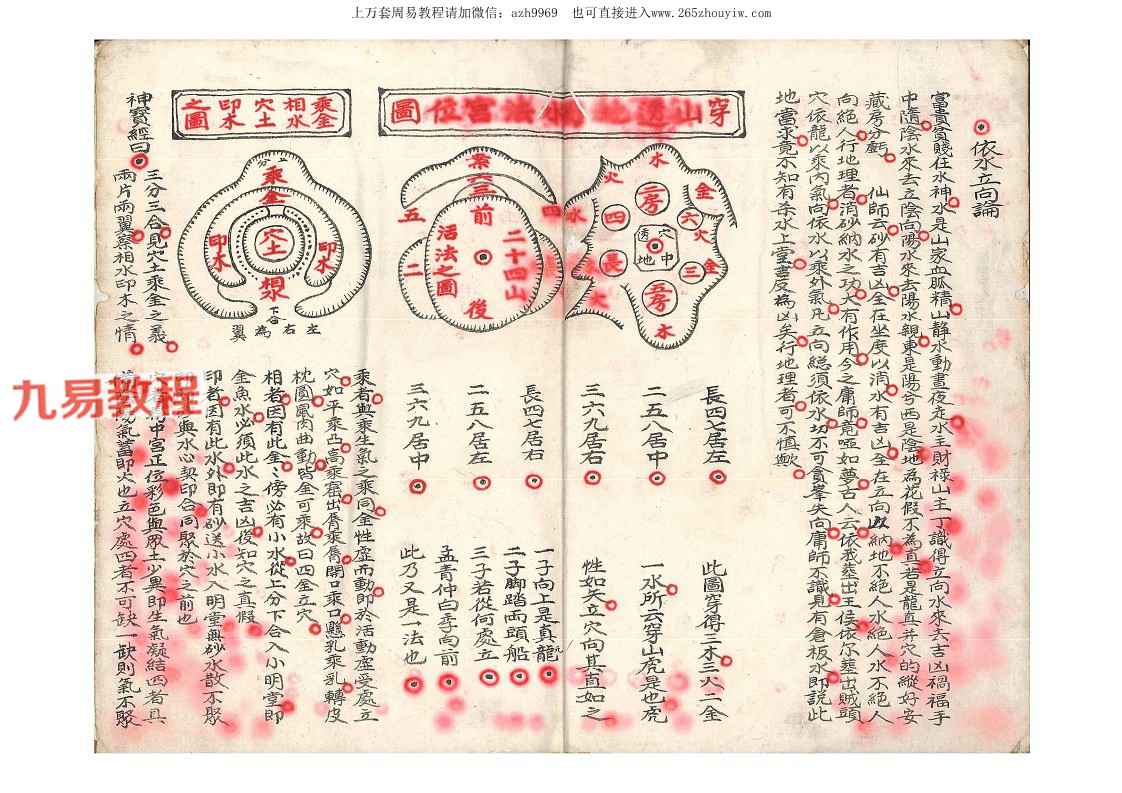 上万套周易教程请加微信：azh9969 也可直接进入www.265zhouyiw.com
依水立向論
富貴貧賤在水神水是山家血脈精山静水動晝夜定水主財祿山主丁識得立向水來去吉凶禍福手
中隨陰水來去立陰向陽水來去陽水親東是陽兮西是陰地為花假不為真若是龍真并穴的縱好安
藏房分虧 仙師云砂有吉凶全在坐度以消水有吉凶全在立向以納地不絕人水絕人水不絕人
向絕人行地理者消砂納水之功大有作用今之庸師竟啞如夢古人云依我葬出王侯依尔葬出賊頭
穴依龍以乘内氣向依水以乘外氣凡立向縂須依水切不可貪峯失向庸師不識見有倉板水即説此
地當求竟不知有杀水上堂書反為凶矣行地理者可不慎歟
穿山透地水法宮位圖
水
金
火
二房
四
六
火
水
透穴
地中
長
三
金
五房
水
火
案六三
前
四
五
二
二十四山
活法之圖
後
長四七居左
二五八居中
三六九居右
長四七居右
二五八居左
三六九居中
此圖穿得三木三火二金
一水所云穿山虎是也虎
性如矢立穴向其直如之
一子向上是真龍
二子脚踏両頭船
三子若從何處立
孟青仲白季向前
此乃又是一法也
乘金相水穴土印木之圖
上分
乘金
穴土
印木
印木
相水
下合
左右為翼
神寳經曰
三分三合見穴土乘金之義
兩片兩翼察相水印木之情
乘者與乘生氣之乘同金性虚而動即於活動虚受處立
穴如平乘凸高乘窟出唇乘唇開口乘口懸乳乘乳轉皮
枕圓属肉曲動皆金可乘故曰四金立穴
相者因有此金傍必有小水從上分下合入小明堂即
金魚水必須此水之吉凶後知穴之真假
印者因有此水外即有砂送小水入明堂無砂水散不聚
與水心契印合同聚於穴之前也
中宮正位彩色與凡土少異即生氣凝結四者具
氣蓄即火也立穴處四者不可缺一缺則氣不聚
九易教程